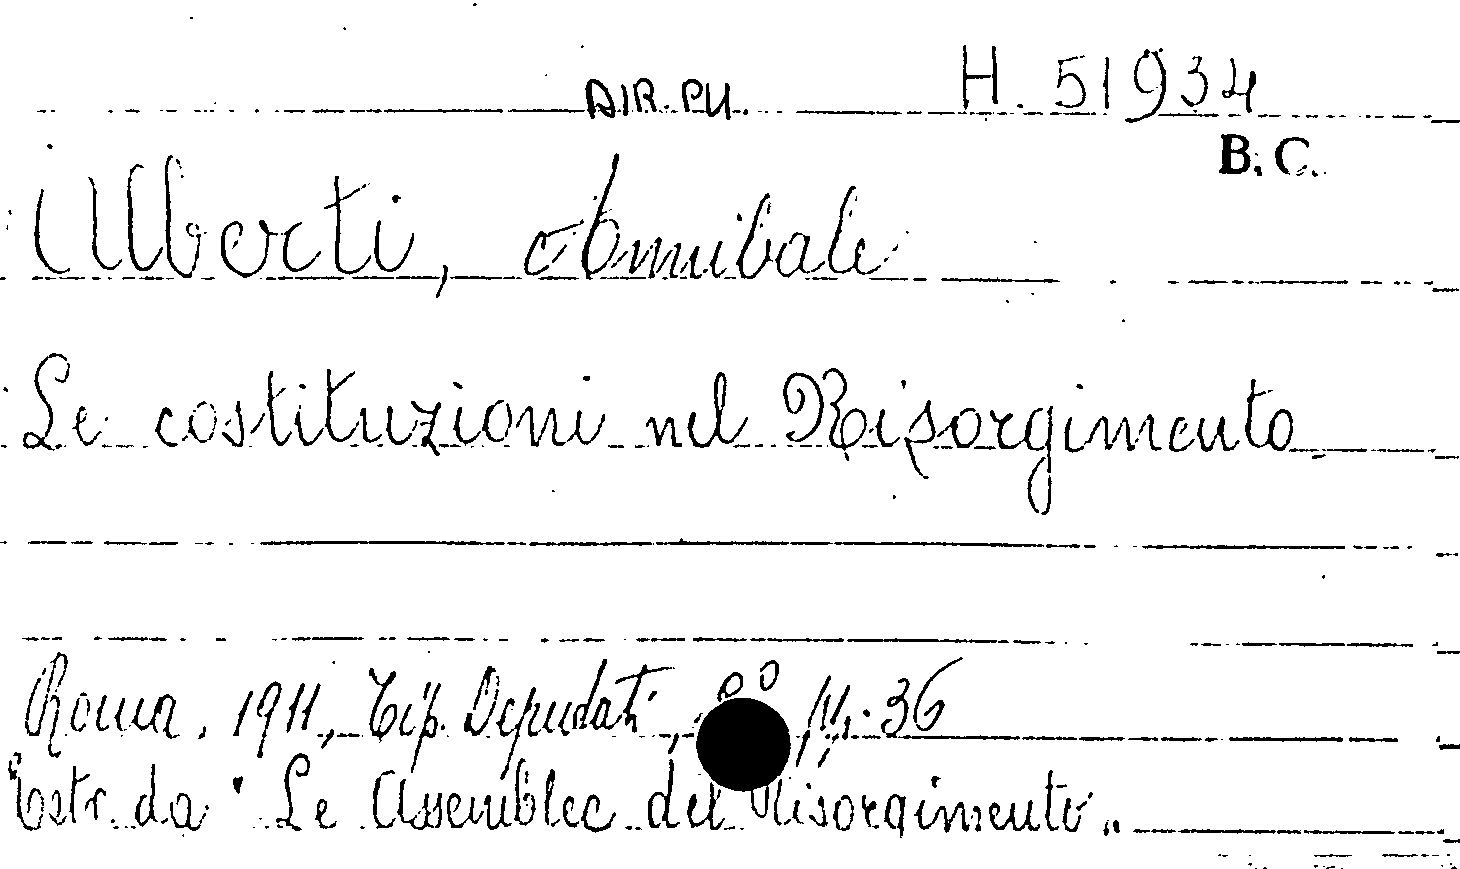 DIR. PU. H. 51934
B. C.
Alberti, Annibale
Le costituzioni nel Risorgimento.
Roma, 1911, Tip. Deputati, 8° pp. 36
Estr. da "Le Assemblee del Risorgimento"